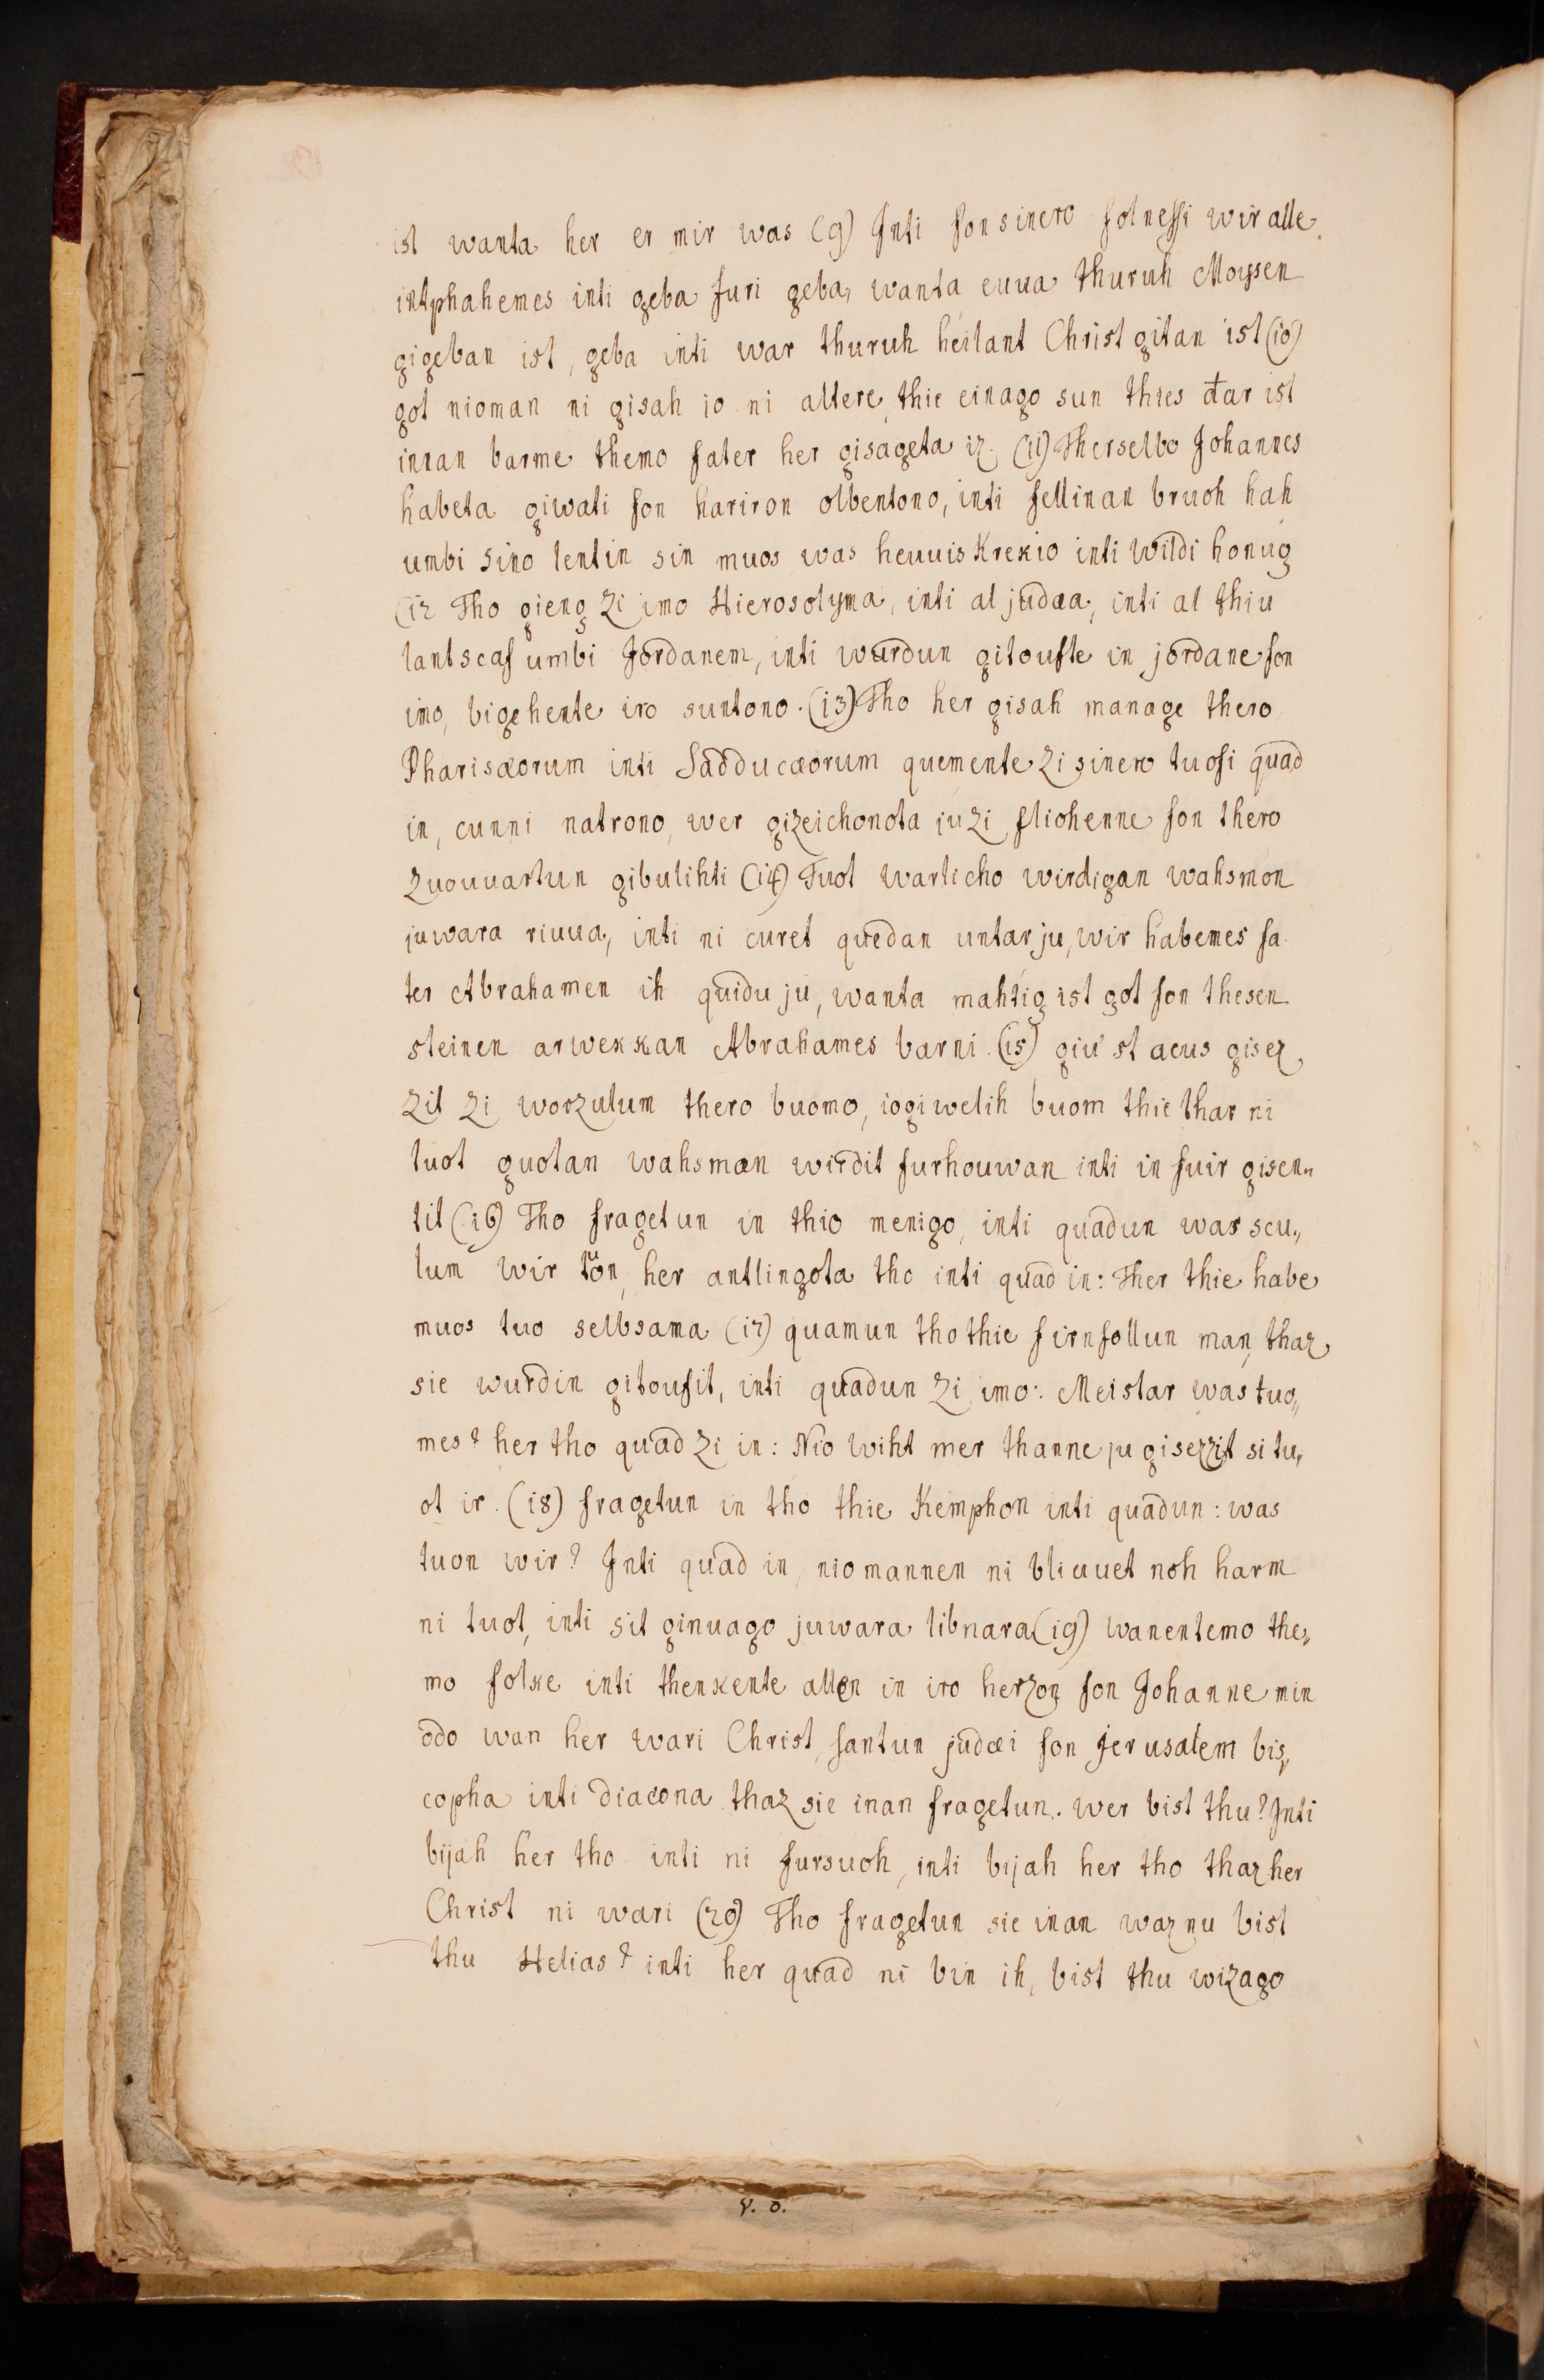 ist wanta her er mir was (9) Inti fon sinero folnessi wir alle
intphahemes inti geba furi geba, wanta euua thuruh Moysen
gigeban ist, geba inti war thuruh heilant Christ gitan ist (10)
got nioman ni gisah io ni altere, thie einago sun thies đar ist
innan barme themo fater her gisageta iz. (11) Therselbo Johannes
habeta giwati fon hariron olbentono, inti fellinan bruoh hah
umbi sino lentin sin muos was heuuiskrekio inti wildi honug
(12 Tho gieng zi imo Hierosolyma, inti al judæa, inti al thiu
lantscaf umbi Jordanem, inti wurdun gitoufte in jordane fon
imo, bigehente iro suntono. (13) Tho her gisah manage thero
Pharisæorum inti Sadducæorum quemente zi sinero tuofi quad
in, cunni natrono, wer gizeichonota ju zi fliohenne fon thero
zuouuartun gibulihti (14) Tuot warlicho wirdigan wahsmon
juwara riuua, inti ni curet quedan untar ju, wir habemes fa
ter Abrahamen ih quidu ju, wanta mahtig ist got fon thesen
steinen arwekkan Abrahames barni. (15) giu st acus gisez
zit zi worzulum thero buomo, iogiwelih buom thie thar ni
tuot guotan wahsman wirdit furhouwan inti in fuir gisen„
tit (16) Tho fragetun in thio menigo, inti quadun was scu„
lum wir tůon, her antlingota tho inti quad in: Ther thie habe
muos tuo selbsama (17) quamun tho thie firnfollun man, thaz
sie wurdin gitoufit, inti quadun zi imo: Meistar was tuo„
mes? her tho quad zi in: Nio wiht mer thanne ju gisezzit si tu„
ot ir. (18) fragetun in tho thie Kemphon inti quadun: was
tuon wir? Inti quad in, niomannen ni bliuuet noh harm
ni tuot, inti sit ginuago juwara libnara (19) wanentemo the„
mo folke inti thenkente allen in iro herzon fon Johanne min
odo wan her wari Christ, santun judæi fon Jerusalem bis„
copha inti diacona thaz sie inan fragetun. wer bist thu? Inti
bijah her tho inti ni fursuoh, inti bijah her tho thaz her
Christ ni wari (20) Tho fragetun sie inan waz nu bist
thu Helias? inti her quad ni bin ih, bist thu wizago
v. o.